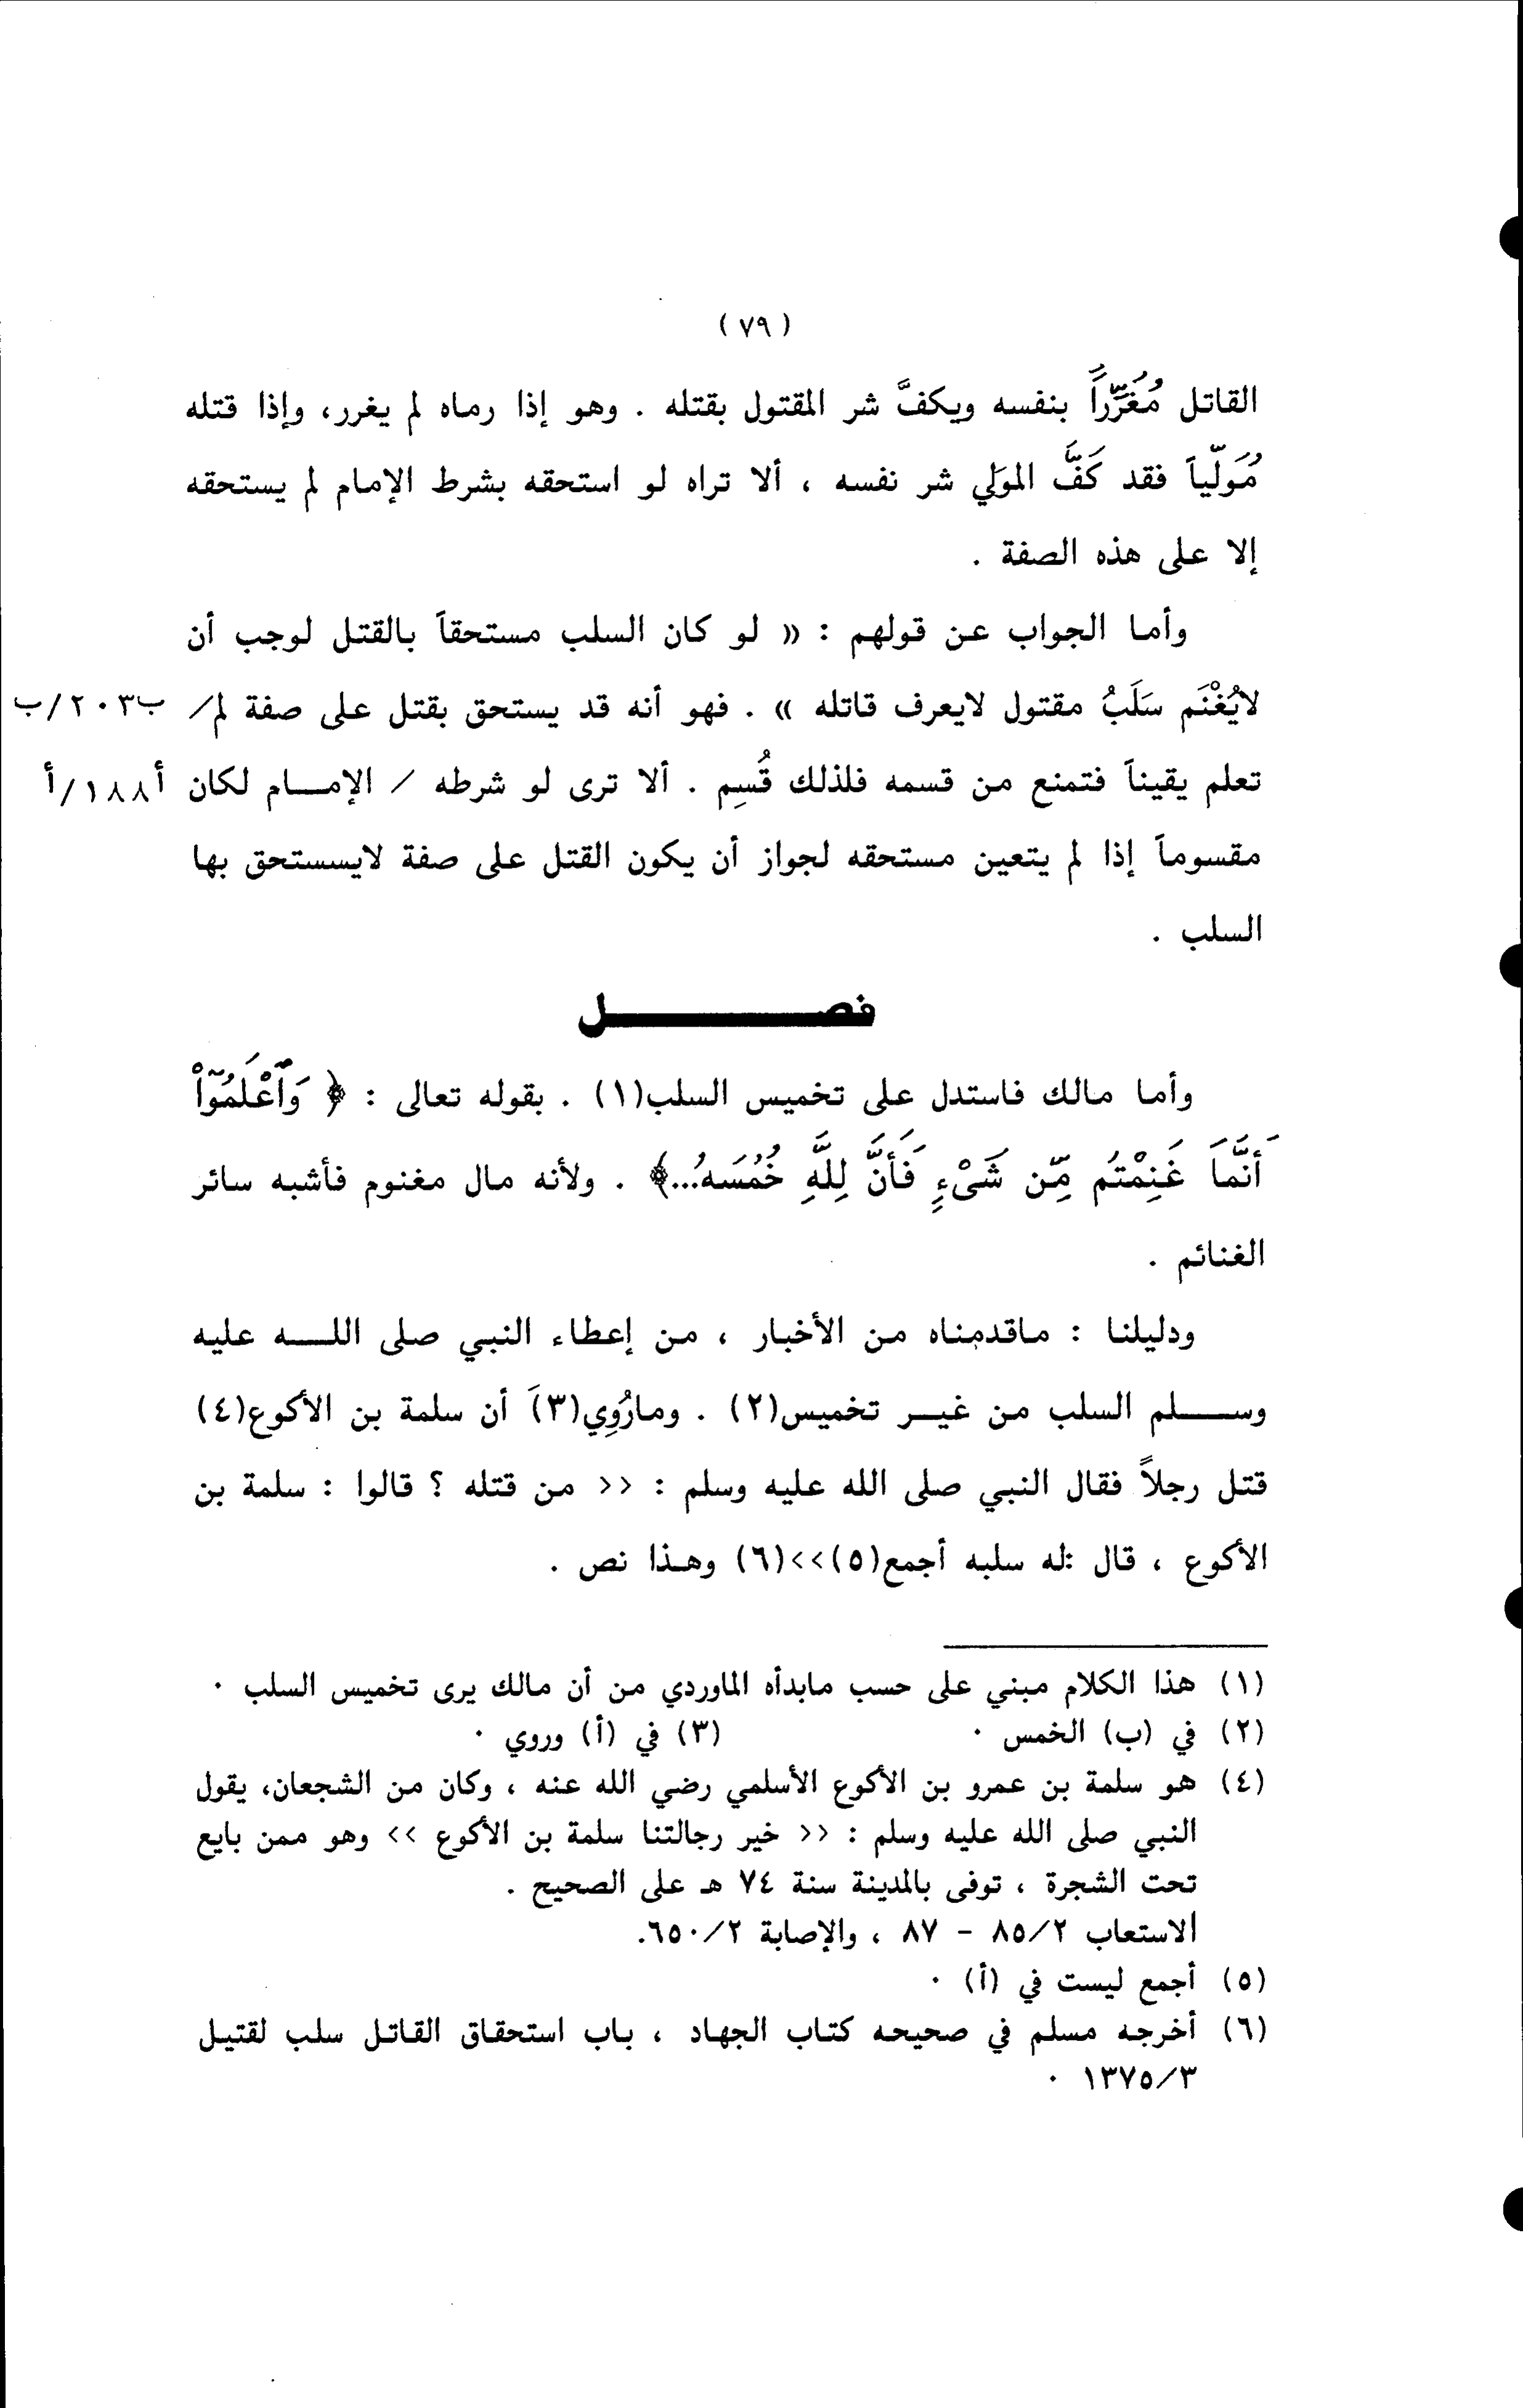 ( ٧٩ )
القاتل مُغَرِّراً بنفسه ويكفَّ شر المقتول بقتله . وهو إذا رماه لم يغرر، وإذا قتله
مُوَلّياً فقد كَفَّ المولي شر نفسه ، ألا تراه لو استحقه بشرط الإمام لم يستحقه
إلا على هذه الصفة .
وأما الجواب عن قولهم : « لو كان السلب مستحقاً بالقتل لوجب أن
لايُغْنَم سَلَبُ مقتول لايعرف قاتله » . فهو أنه قد يستحق بقتل على صفة لم/ ب٢٠٣/ب
تعلم يقيناً فتمنع من قسمه فلذلك قُسِم . ألا ترى لو شرطه / الإمــام لكان أ١٨٨/أ
مقسوماً إذا لم يتعين مستحقه لجواز أن يكون القتل على صفة لايسستحق بها
السلب .
فصــــــــل
وأما مالك فاستدل على تخميس السلب(١) . بقوله تعالى : ﴿ وَٱعْلَمُوٓاْ
أَنَّمَا غَنِمْتُم مِّن شَىْءٍ فَأَنَّ لِلَّهِ خُمُسَهُ...﴾ . ولأنه مال مغنوم فأشبه سائر
الغنائم .
ودليلنا : ماقدمناه من الأخبار ، من إعطاء النبي صلى اللــه عليه
وســـلم السلب من غيــر تخميس(٢) . ومارُوِي(٣)َ أن سلمة بن الأكوع(٤)
قتل رجلاً فقال النبي صلى الله عليه وسلم : << من قتله ؟ قالوا : سلمة بن
الأكوع ، قال :له سلبه أجمع(٥)>>(٦) وهـذا نص .
(١) هذا الكلام مبني على حسب مابدأه الماوردي من أن مالك يرى تخميس السلب .
(٢) في (ب) الخمس . (٣) في (أ) وروي .
(٤) هو سلمة بن عمرو بن الأكوع الأسلمي رضي الله عنه ، وكان من الشجعان، يقول
النبي صلى الله عليه وسلم : << خير رجالتنا سلمة بن الأكوع >> وهو ممن بايع
تحت الشجرة ، توفى بالمدينة سنة ٧٤ هـ على الصحيح .
الاستعاب ٨٥/٢ - ٨٧ ، والإصابة ٦٥٠/٢.
(٥) أجمع ليست في (أ) .
(٦) أخرجه مسلم في صحيحه كتاب الجهاد ، باب استحقاق القاتل سلب لقتيل
١٣٧٥/٣ .